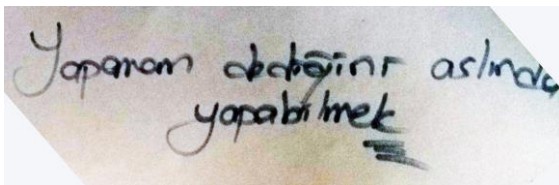 Yapamam dediğini aslında
yapabilmek